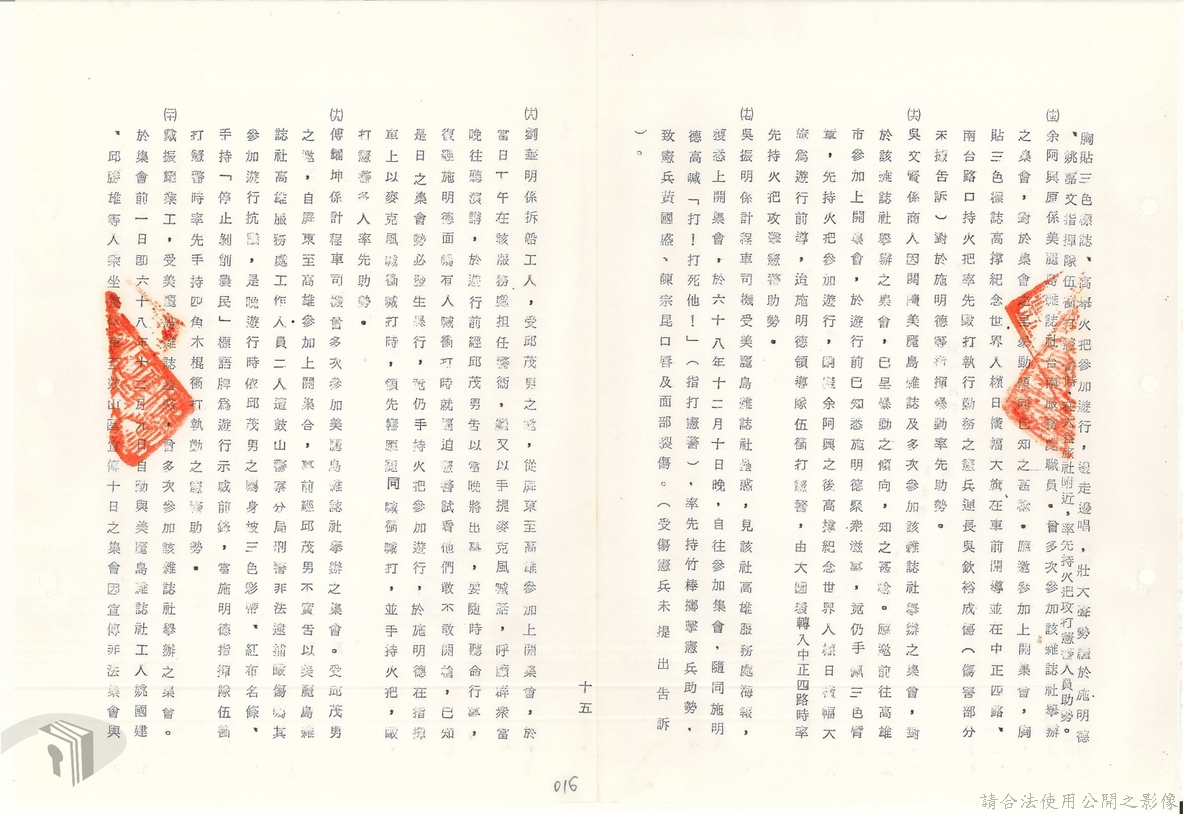 胸貼三色標誌、高舉火把參加遊行,邊走邊唱,壯大聲勢繼於施明德
、姚嘉文指揮隊伍衝打憲警時在大公旅社附近,率先持火把攻打憲警人員助勢。
㈩余阿興原係美麗島雜誌社台南服務處職員。曾多次參加該雜誌社舉辦
之集會,對於集會之暴動傾向已知之甚稔。應邀參加上開集會,胸
貼三色標誌高撐紀念世界人權日橫幅大旗在車前開導並在中正四路、
南台路口持火把率先毆打執行勤務之憲兵連長吳欽裕成傷(傷害部分
未據告訴)對於施明德等指揮暴動率先助勢。
吳文賢係商人因閱讀美麗島雜誌及多次參加該雜誌社舉辦之集會,對
於該雜誌社舉辦之集會,已呈暴動之傾向,知之甚稔。應邀前往高雄
市參加上開集會,於遊行前已知悉施明德聚衆滋事,竟仍手佩三色臂
章,先持火把參加遊行,嗣與余阿興之後高撐紀念世界人權日橫幅大
旗爲遊行前導,迨施明德領導隊伍衝打憲警,由大圓環轉入中正四路時率
先持火把攻擊憲警助勢。
吳振明係計程車司機受美麗島雜誌社蠱惑,見該社高雄服務處海報,
獲悉上開集會,於六十八年十二月十日晚,自往參加集會,隨同施明
德高喊「打!打死他!」(指打憲警),率先持竹棒擲擊憲兵助勢,
致憲兵黃國盛、陳宗昆口唇及面部裂傷。(受傷憲兵未提出告訴
)。
十五
劉華明係拆船工人,受邱茂男之邀,從屏東至高雄參加上開集會,於
當日下午在該服務處担任警衛,繼又以手提麥克風喊話,呼籲群衆當
晚往聽演講,於遊行前經邱茂男告以當晚將出事,要隨時聽命行事,
復經施明德面囑有人喊衝打時就逼迫憲警試看他們敢不敢開槍,已知
是日之集會勢必發生暴行,竟仍手持火把參加遊行,於施明德在指揮
車上以麥克風喊衝喊打時,領先響應隨同喊衝喊打,並手持火把,毆
打憲警多人率先助勢。
傅耀坤係計程車司機曾多次參加美麗島雜誌社舉辦之集會。受邱茂男
之邀,自屏東至高雄參加上開集合,事前經邱茂男不實告以美麗島雜
誌社高雄服務處工作人員二人遭鼓山警察分局刑警非法逮捕毆傷囑其
參加遊行抗議,是晚遊行時依邱茂男之囑身披三色彩帶、紅布名條、
手持「停止剝削農民」標語牌爲遊行示威前鋒,當施明德指揮隊伍衝
打憲警時率先手持四角木棍衝打執勤之憲警助勢。
戴振耀業工,受美麗島雜誌,曾多次參加該雜誌社舉辦之集會。
於集會前一日即六十八年十二月九日自動與美麗島雜誌社工人姚國建
、邱勝雄等人乘坐鼓山區宣傳十日之集會因宣傳非法集會與
016
請合法使用公開之影像